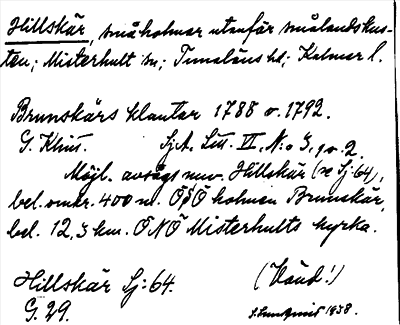 Hillskär, småholmar utanför smålandskus-
ten; Misterhult sn; Tunaläns hd; Kalmar l.
Brunskärs klantar 1788 o. 1792.
G. Khn. SjA. Litt. II, N:o 3, 2.
Möjl. avsågs nuv. Hillskär (se Sj:64),
bel. omkr. 400 m. ÖSÖ holmen Brunskär,
bel. 12,3 km. ÖNÖ Misterhults kyrka.
Hillskär Sj:64. (Vänd!)
G. 29. 1938.